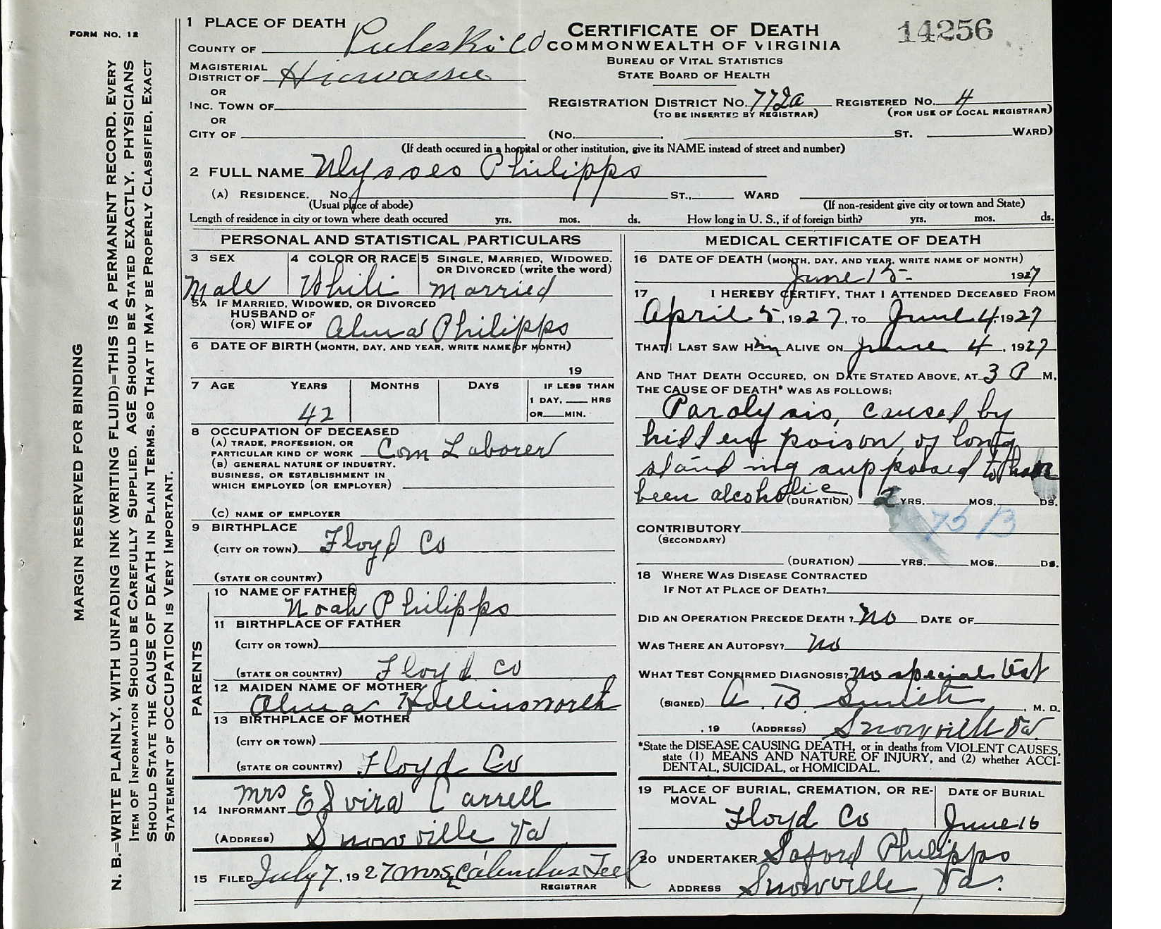 FORM NO. 12
MARGIN RESERVED FOR BINDING
N. B.—WRITE PLAINLY, WITH UNFADING INK (WRITING FLUID)—THIS IS A PERMANENT RECORD. EVERY
ITEM OF INFORMATION SHOULD BE CAREFULLY SUPPLIED. AGE SHOULD BE STATED EXACTLY. PHYSICIANS
SHOULD STATE THE CAUSE OF DEATH IN PLAIN TERMS, SO THAT IT MAY BE PROPERLY CLASSIFIED. EXACT
STATEMENT OF OCCUPATION IS VERY IMPORTANT.
1 PLACE OF DEATH
COUNTY OF Puleski Co
MAGISTERIAL
DISTRICT OF Hiwassee
OR
INC. TOWN OF
OR
CITY OF
CERTIFICATE OF DEATH
COMMONWEALTH OF VIRGINIA
BUREAU OF VITAL STATISTICS
STATE BOARD OF HEALTH
14256
REGISTRATION DISTRICT NO. 772a REGISTERED NO. 4
(TO BE INSERTED BY REGISTRAR) (FOR USE OF LOCAL REGISTRAR)
(NO. ST. WARD)
(If death occured in a hospital or other institution, give its NAME instead of street and number)
2 FULL NAME Ulysses Philipps
(A) RESIDENCE. NO. ST., WARD
(Usual place of abode) (If non-resident give city or town and State)
Length of residence in city or town where death occured yrs. mos. ds. How long in U. S., if of foreign birth? yrs. mos. ds.
PERSONAL AND STATISTICAL PARTICULARS
3 SEX 4 COLOR OR RACE 5 SINGLE, MARRIED, WIDOWED,
OR DIVORCED (write the word)
Male White Married
5A IF MARRIED, WIDOWED, OR DIVORCED
HUSBAND OF
(OR) WIFE OF Alma Philipps
6 DATE OF BIRTH (MONTH, DAY, AND YEAR, WRITE NAME OF MONTH)
19
7 AGE YEARS MONTHS DAYS IF LESS THAN
1 DAY, HRS
OR MIN.
42
8 OCCUPATION OF DECEASED
(A) TRADE, PROFESSION, OR
PARTICULAR KIND OF WORK Com Laborer
(B) GENERAL NATURE OF INDUSTRY.
BUSINESS, OR ESTABLISHMENT IN
WHICH EMPLOYED (OR EMPLOYER)
(C) NAME OF EMPLOYER
9 BIRTHPLACE
(CITY OR TOWN) Floyd Co
(STATE OR COUNTRY)
PARENTS
10 NAME OF FATHER
Noah Philipps
11 BIRTHPLACE OF FATHER
(CITY OR TOWN)
(STATE OR COUNTRY) Floyd Co
12 MAIDEN NAME OF MOTHER
Alma Hollinsworth
13 BIRTHPLACE OF MOTHER
(CITY OR TOWN)
(STATE OR COUNTRY) Floyd Co
14 INFORMANT Mrs Elvira Carrell
(ADDRESS) Snowville Va
15 FILED July 7, 1927 Mrs Teel
REGISTRAR
MEDICAL CERTIFICATE OF DEATH
16 DATE OF DEATH (MONTH, DAY, AND YEAR, WRITE NAME OF MONTH)
June 15- 1927
17 I HEREBY CERTIFY, THAT I ATTENDED DECEASED FROM
April 5, 1927, TO June 4, 1927
THAT I LAST SAW HIM ALIVE ON June 4, 1927
AND THAT DEATH OCCURED, ON DATE STATED ABOVE, AT 3 P M.
THE CAUSE OF DEATH* WAS AS FOLLOWS:
Paralysis, caused by
hidden poison, of long
standing supposed to have
been alcoholic (DURATION) 2 YRS. MOS. DS.
75/3
CONTRIBUTORY
(SECONDARY)
(DURATION) YRS. MOS. DS.
18 WHERE WAS DISEASE CONTRACTED
IF NOT AT PLACE OF DEATH?
DID AN OPERATION PRECEDE DEATH? No DATE OF
WAS THERE AN AUTOPSY? No
WHAT TEST CONFIRMED DIAGNOSIS? No special test
(SIGNED) A. B. Smith M. D.
, 19 (ADDRESS) Snowville Va
*State the DISEASE CAUSING DEATH, or in deaths from VIOLENT CAUSES,
state (1) MEANS AND NATURE OF INJURY, and (2) whether ACCI-
DENTAL, SUICIDAL, or HOMICIDAL.
19 PLACE OF BURIAL, CREMATION, OR RE-
MOVAL DATE OF BURIAL
Floyd Co June 16
20 UNDERTAKER Saford Philipps
ADDRESS Snowville, Va.